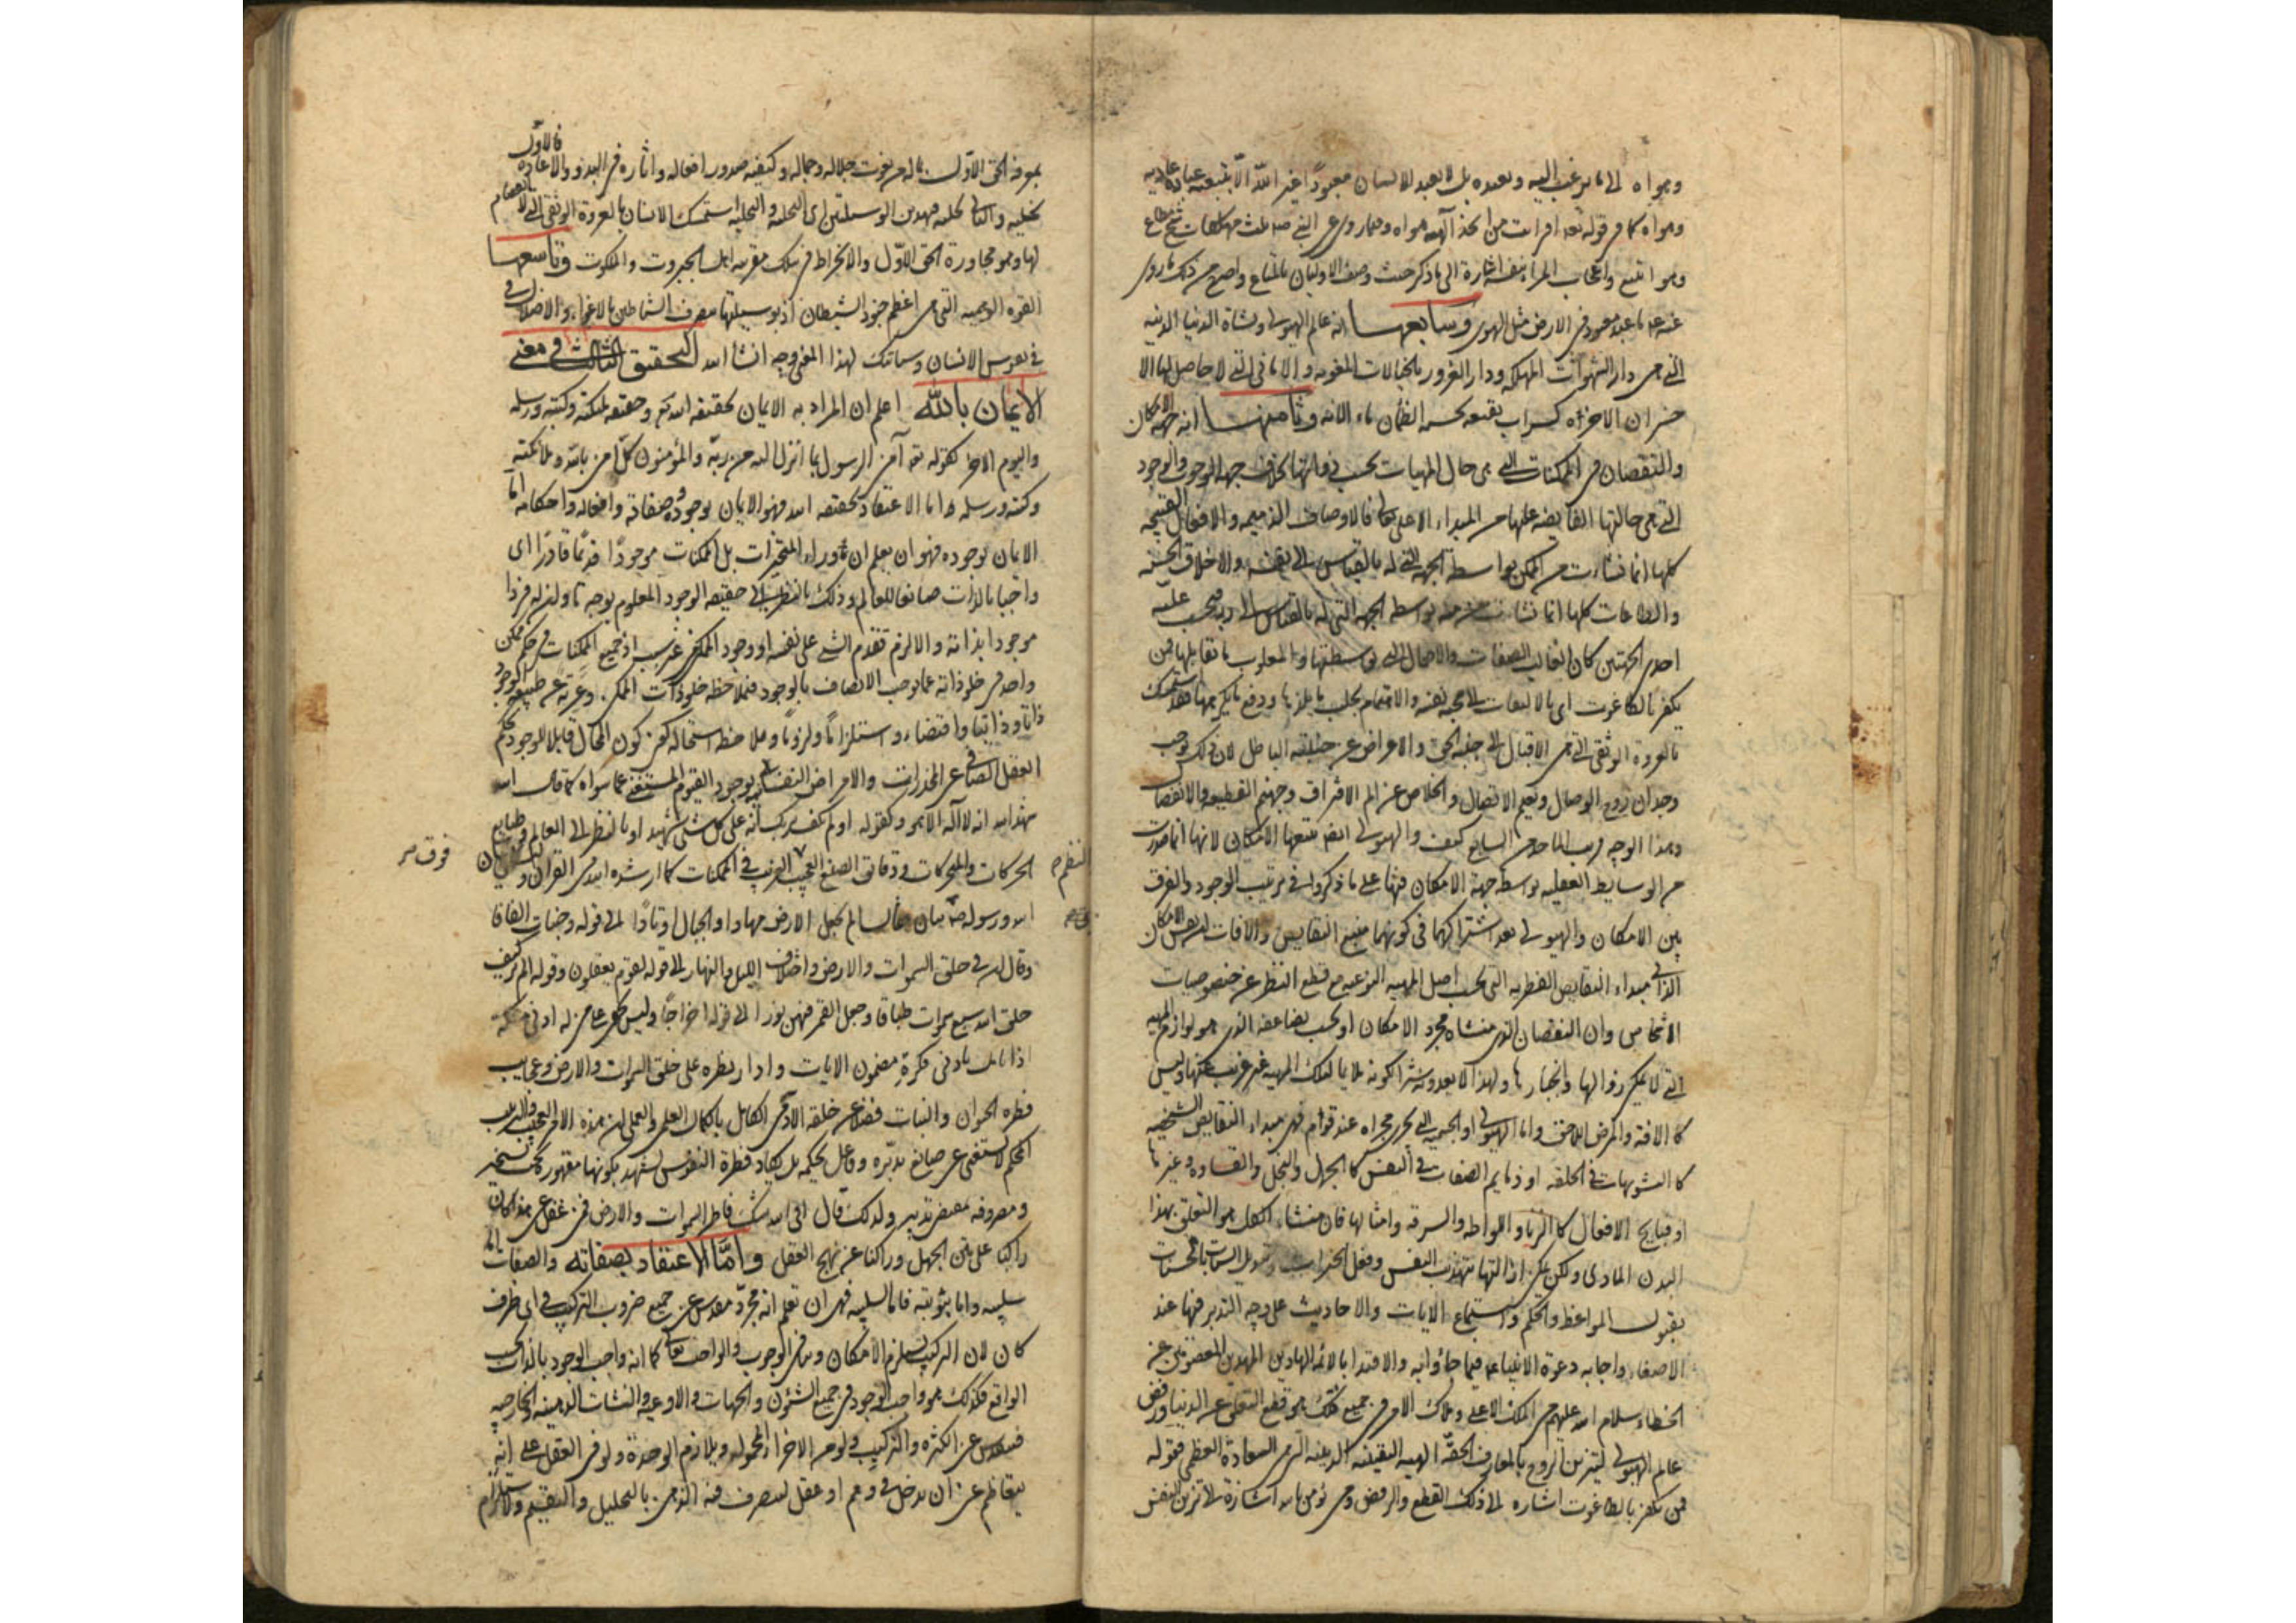 وهواه الى ما يرغب اليه ويعبده بل لا يعبد الانسان معبودًا غير الله الّا بتبعية عبادة
وهواه كما في قوله تعه افرايت من اتخذ آلهه هواه ومما روى عن النبي صه ثلث مهلكات شح مطاع
وهوا متبع واعجاب المرء بنفسه اشارة الى ما ذكر حيث وصف الاوليان بالمتاع واصح من ذلك ما روى
عنه عه ما عبد معبود في الارض مثل الهوى وسابعها انه عالم الهيولى ونشاة الدنيا الدنيه
التي هي دار الشهوات المهلكه ودار الغرور بالخيالات المغويه والامانى التي لا حاصل لها الا
خسران الاخره كسراب بقيعه يحسبه الظمان ماء الايه وثامنها انه جهة الامكان
والنقصان في الممكنات التي هي حال المهيات بحسب ذواتها بخلاف جهه الوجوب والوجود
التي هي حالتها الفايضه عليها من المبداء الاعلى تعالى فالاوصاف الذميمه والافعال القبيحه
كلها انما نشات من الممكن بواسطة الجهه التي له بالقياس الى نفسه والاخلاق الحسنه
والطاعات كلها انما نشات منه بواسطه الجهه التي له بالقياس الى ربه غلبه
احدى الجهتين كان الغالب الصفات والاعمال التي بواسطتها والمغلوب ما تقابلها فمن
يكفر بالطاغوت اى بالالتفات الى محبه نفسه والاهتمام بجلب ما يلذها ودفع ما يكرهها فقد استمسك
بالعروة الوثقى التي هي الاقبال الى جنبه الحق والاعراض عن جنبته الباطل لان ذلك يوجب
وجدان روح الوصال ونعيم الاتصال والخلاص عن الم الافتراق وجهنم القطيعه والانفصال
وهذا الوجه قريب الماخذ من السابع كيف والهيولى ايضه منبعها الامكان لانها انما صدرت
من الوسايط العقليه بواسطه جهة الامكان فيها على ما ذكروه في ترتيب الوجود والفرق
بين الامكان والهيولى بعد اشتراكهما في كونهما منبع النقايص والافات ان الامكان
الذاتى مبداء النقايص الفطريه التي بحسب اصل المهيه النوعيه مع قطع النظر عن خصوصيات
الاشخاص وان النقصان الذى منشاه مجرد الامكان او بحسب تضاعفه الذى هو لوازم المهيه
التي لا يمكن زوالها وانجبارها ولهذا لا يعد وسه شرا لكونه ملايما لتلك المهيه غير غريب عنها وليس
كالافه والمرض اللاحق واما الهيولى او الجسميه التي يجرى مجراه عند قوم فهى مبداء النقايص الشخصيه
كالتشويهات في الخلقه او ذمايم الصفات في النفس كالجهل والبخل والقساوه وغيرها
او قبايح الافعال كالزنا واللواطه والسرقه وامثالها فان منشاء الكل هو التعلق بهذا
البدن المادى ولكن يمكن ازالتها بتهذيب النفس وفعل الخيرات وتبديل السيئات بالحسنات
بقبول المواعظ والحكم واستماع الايات والاحاديث على وجه التدبر فيها عند
الاصغاء واجابه دعوة الانبياء عه فيما جاوا به والاقتدا بالائمه الهادين المهديين المعصومين عن
الخطاء سلام الله عليهم من الملك الاعلى وملاك الامر في جميع ذلك هو قطع التعلق عن الدنيا ورفض
عالم الهيولى ليتزين الروح بالمعارف الحقّه الهيه اليقينيه الدينيه التي هي السعادة العظمى فقوله
فمن يكفر بالطاغوت اشاره الى ذلك القطع والرفض ومن يؤمن بالله اشارة الى تزين النفس
فالاوّل
بمعرفه الحق الاوّل بما له من نعوت جلاله وجماله وكيفيه صدور افعاله واثاره في البدو والاعاده
تخليه والثانى تحليه فبهذين الوسيلتين اى التخليه والتحليه استمسك الانسان بالعروة الوثقى التي لا انفصام
لها وهو مجاورة الحق الاوّل والانخراط في سلك مقربيه اهل الجبروت والملكوت وتاسعها
القوه الوهميه التي هي اعظم جنود الشيطان اذ بوسيلتها تصرف الشياطين بالاغواء والاضلال
في نفوس الانسان وسياتيك لهذا المعنى وجه انشاء الله التحقيق الثالث في معنى
الايمان بالله اعلم ان المراد به الايمان بحقيقه الله تعه وحقيقه ملئكته وكتبه ورسله
واليوم الاخر كقوله تعه آمن الرسول بما انزل اليه من ربّه والمؤمنون كلّ آمن بالله وملائكته
وكتبه ورسله واما الاعتقاد بحقيقه الله فهو الايمان بوجوده وصفاته وافعاله واحكامه اما
الايمان بوجوده فهو ان يعلم ان ما وراء المتحيزات بل الممكنات موجودًا قديمًا قادرًا اى
واجبا بالذات صانعا للعالم وذلك بالنظر الى حقيقه الوجود المعلوم بوجه ما ولنزله فردا
موجودا بذاته والا لزم تقدم الشي على نفسه او وجود الممكن من غير سبب اذ جميع الممكنات في حكم ممكن
واحد في خلو ذاته عما يوجب الاتصاف بالوجود فبملاحظه خلو ذات الممكن وعريّه عن طبيعه الوجود
ذاتا وذاتيا واقتضاء واستلزامًا ولزومًا وملاحظه استحاله كون المحال قابلا للوجود يحكم
العقل الصافى عن المخدرات والامراض النفسانيه بوجود القيوم المستغنى عما سواه كما قال الله
شهد الله انه لا اله الا هو وكقوله اولم يكف بربك انه على كل شئ شهيد او بالنظر الى العالم وطبايع
الحركات والمتحركات ودقائق الصنع العجيب الغريب في الممكنات كما ارشده الله في القران
الله ورسوله صه بيان فقال الم نجعل الارض مهادا والجبال اوتادًا الى قوله وجنات الفافا
وقال ان في خلق السموات والارض واختلاف الليل والنهار الى قوله لقوم يعقلون وقوله الم تر كيف
خلق الله سبع سموات طباقا وجعل القمر فيهن نورا الى قوله اخراجًا وليس يخفى على من له ادنى مسكه
اذا تامل بادنى فكرةٍ مضمون الايات وادار نظره على خلق السموات والارض وعجايب
فطره الحيوان والنبات فضلا عن خلقه الادمى الكامل بالكمال العلمى والعملى ان هذه الامر العجيب والترتيب
المحكم لا يستغنى عن صانع يدبّره وفاعل يحكمه بل يكاد فطرة النفوس تشهد بكونها مقهورة تحت تسخيره
ومصروفه بمقتضى تدبيره ولذلك قال افى الله شك فاطر السموات والارض فمن غفل عن هذا كان
راكبا على متن الجهل وراكنا عن نهج العقل وامّا الاعتقاد بصفاته والصفات اما
سلبيه واما ثبوتيه فاما السلبيه فهى ان تعلم انه مجرّد مقدس عن جميع ضروب التركيب في اى ظرف
كان لان التركيب يستلزم الامكان وينافى الوجوب والواجب تعالى كما انه واجب الوجود بالذات بحسب
الواقع فكذلك هو واجب الوجود في جميع الشئون والجهات والاوعيه والنشات الذهنيه والخارجيه
فيتقدس عن الكثره والتركيب ولو من الاجزاء المحموله ويلازم الوحدة ولو في العقل على انه
يتعاظم عن ان يدخل في وهم او عقل ليتصرف فيه الذهن بالتحليل والتقسيم ولاستلزام